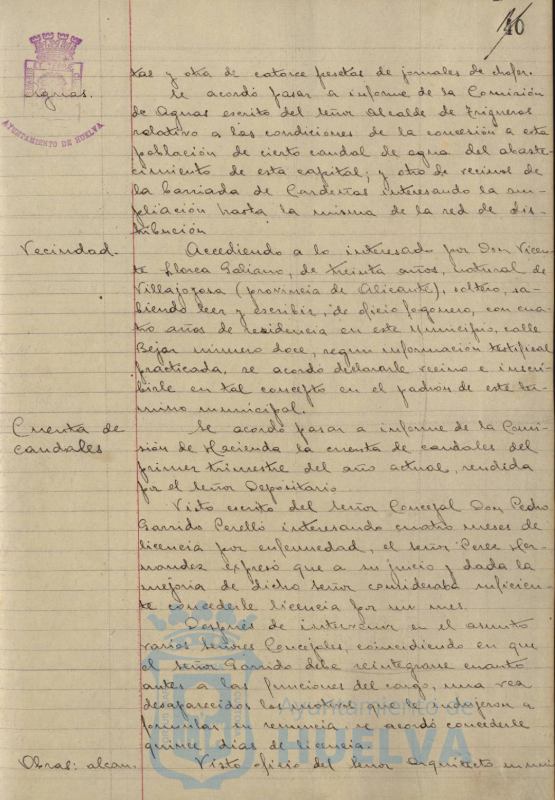 40
AYUNTAMIENTO DE HUELVA
tas y otra de catorce pesetas de jornales de chofer.
Aguas. Se acordó pasar a informe de la Comisión
de Aguas escrito del señor Alcalde de Trigueros
relativo a las condiciones de la concesión a esta
población de cierto caudal de agua del abaste-
cimiento de esta capital; y otro de vecinos de
la barriada de Cardeñas interesando la am-
pliación hasta la misma de la red de dis-
tribución
Vecindad. Accediendo a lo interesado por Don Vicen-
te Llorca Galiano, de treinta años, natural de
Villajoyosa (provincia de Alicante), soltero, sa-
biendo leer y escribir, de oficio fogonero, con cua-
tro años de residencia en este Municipio, calle
Bejar número doce, según información testifical
practicada, se acordó declararle vecino e inscri-
birle en tal concepto en el padrón de este tér-
mino municipal.
Cuenta de Se acordó pasar a informe de la Comi-
caudales sión de Hacienda la cuenta de caudales del
primer trimestre del año actual, rendida
por el señor Depositario
Visto escrito del señor Concejal Don Pedro
Garrido Perelló interesando cuatro meses de
licencia por enfermedad, el señor Perez Her-
nandez expresó que a su juicio y dada la
mejoría de dicho señor consideraba suficien-
te concederle licencia por un mes.
Después de intervenir en el asunto
varios señores Concejales, coincidiendo en que
el señor Garrido debe reintegrarse cuanto
antes a las funciones del cargo, una vez
desaparecidos los motivos que le indujeron a
formular su renuncia, se acordó concederle
quince dias de licencia.
Obras: alcan. Visto oficio del señor Arquitecto muni
Ayuntamiento de
HUELVA